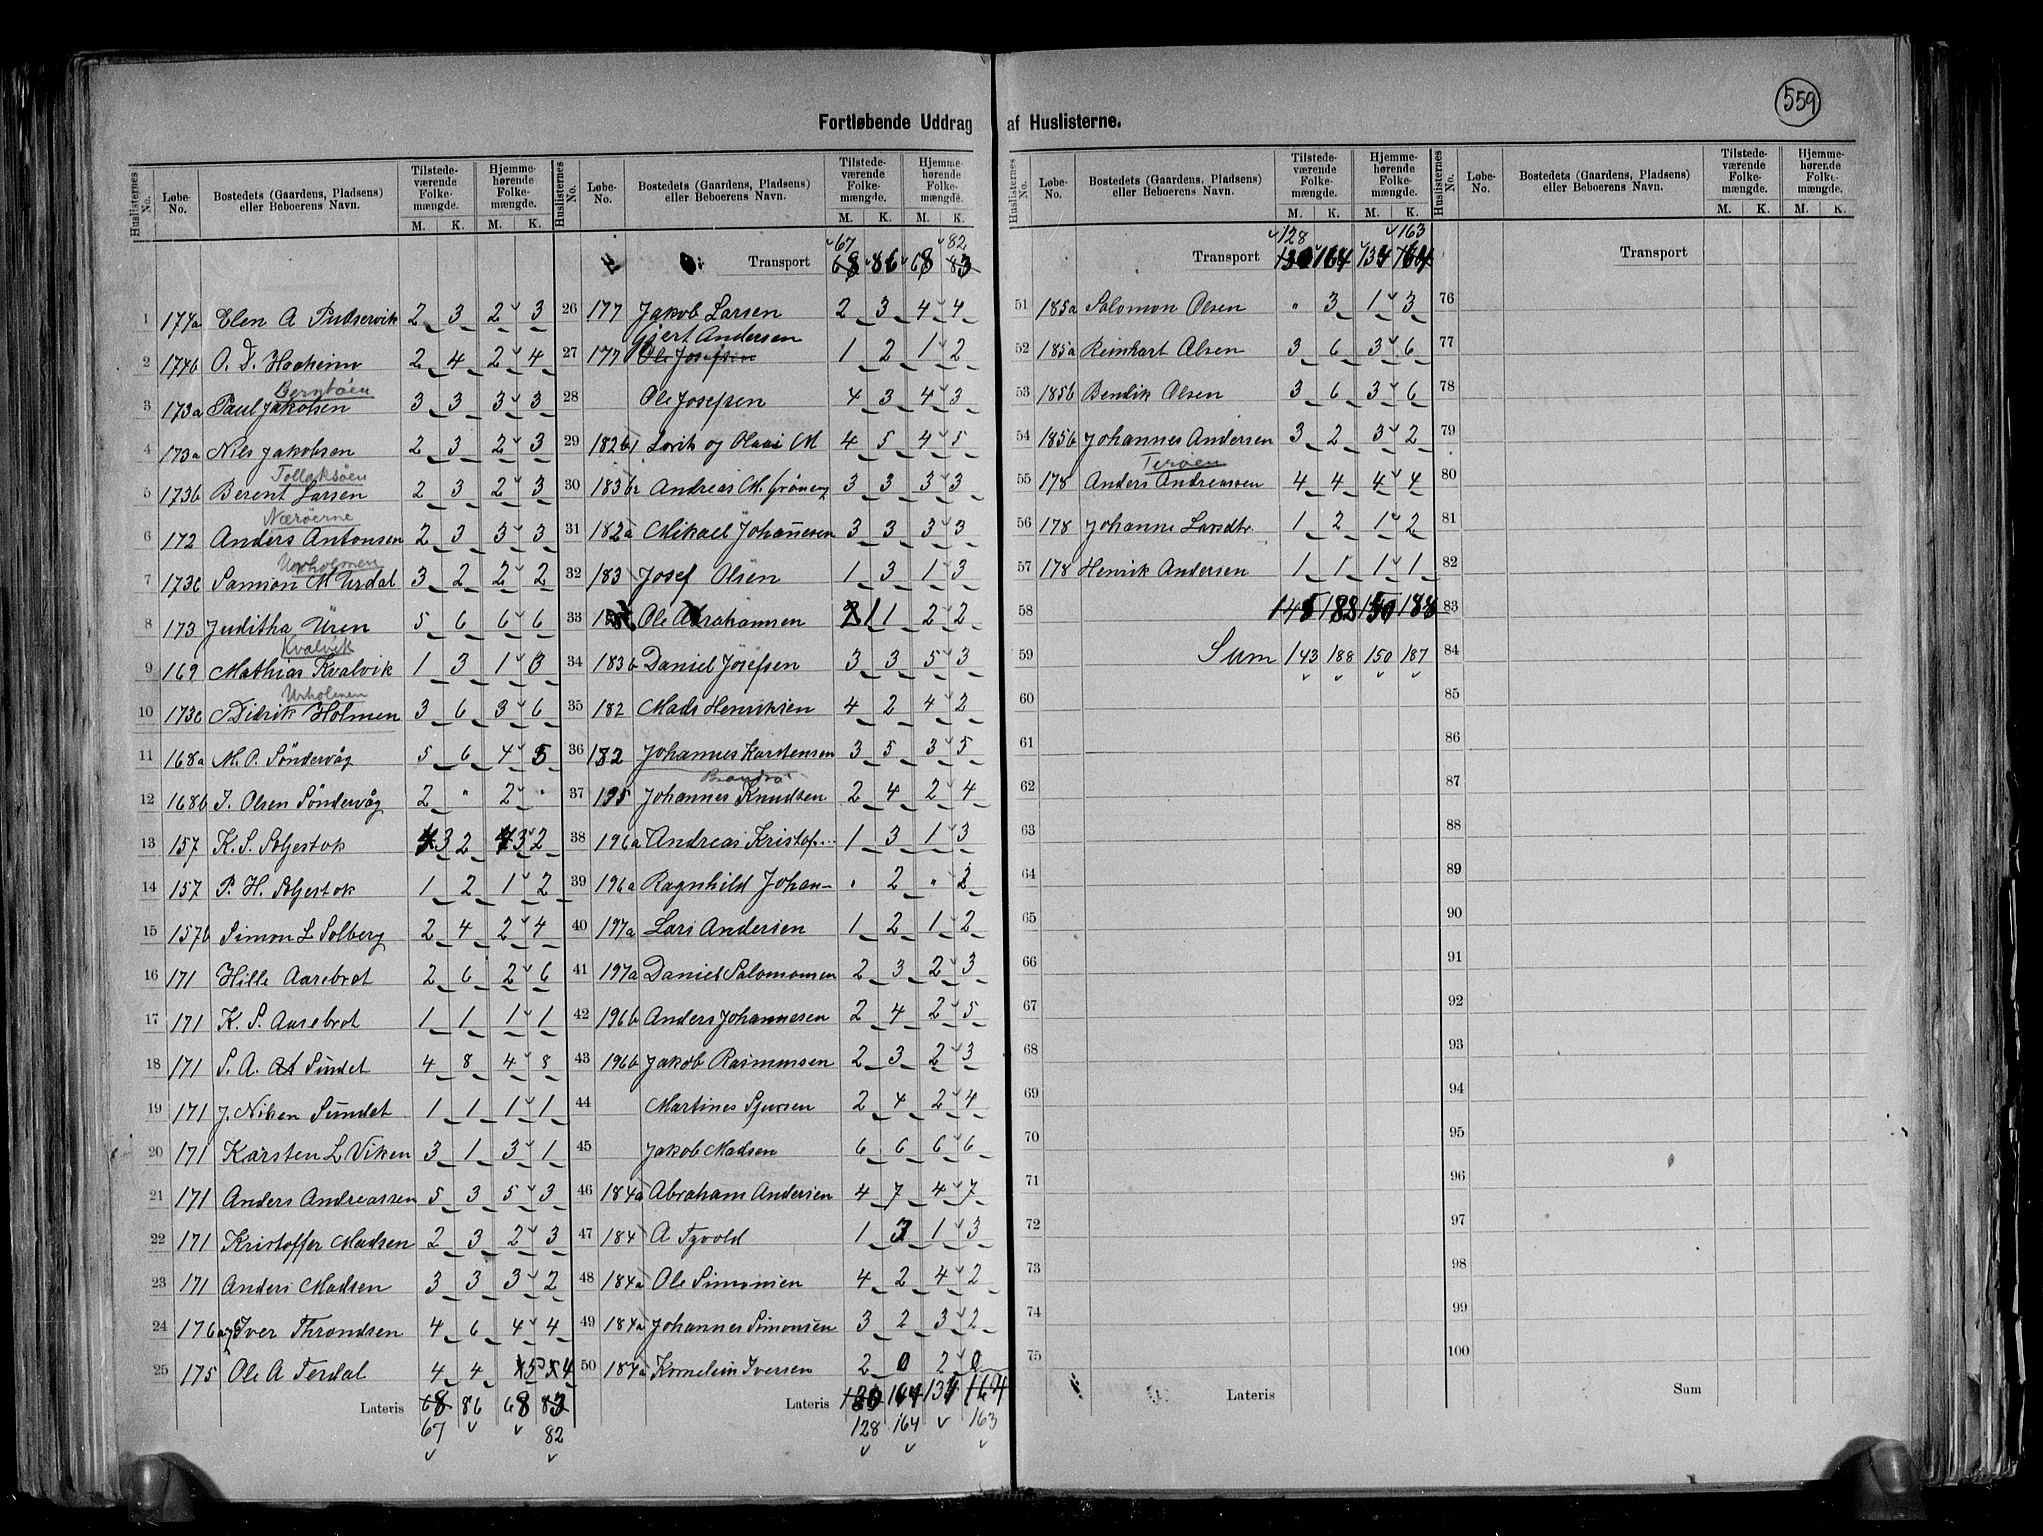 559
Fortløbende Uddrag af Huslisterne.
Huslisternes No. Løbe-No. Bostedets (Gaardens, Pladsens) eller Beboerens Navn. Tilstedeværende Folkemængde. M. K. Hjemmehørende Folkemængde. M. K.
1 174a Elen A Pudservik 2 3 2 3
2 174b O. D. Haaheim 2 4 2 4
Berntøen
3 173a Paul Jakobsen 3 3 3 3
4 173a Nils Jakobsen 2 3 2 3
Tollaksøen
5 173b Berent Larsen 2 3 2 3
Nærøerne
6 172 Anders Antonsen 2 3 3 3
Urholmen
7 173c Samson M Urdal 3 2 2 2
8 173 Juditha Uren 5 6 6 6
Kvalvik
9 169 Mathias Kvalvik 1 3 1 3
Urholmen
10 173c Didrik Holmen 3 6 3 6
11 168a M. O. Søndervåg 5 6 4 5
12 168b I. Olsen Søndervåg 2 " 2 "
13 157 K. S. Soljestok 3 2 3 2
14 157 P. H. Soljestok 1 2 1 2
15 157b Simon L Solberg 2 4 2 4
16 171 Hille Aarebrot 2 6 2 6
17 171 K. S. Aarebrot 1 1 1 1
18 171 S. A. Sundet 4 8 4 8
19 171 J. Niken Sundet 1 1 1 1
20 171 Karsten L Viken 3 1 3 1
21 171 Anders Andreassen 5 3 5 3
22 171 Kristoffer Madsen 2 3 2 3
23 171 Anders Madsen 3 3 3 2
24 176a Iver Throndsen 4 6 4 4
25 175 Ole A Terdal 4 4 5 4
Lateris 68 86 68 83
67 82
Huslisternes No. Løbe-No. Bostedets (Gaardens, Pladsens) eller Beboerens Navn. Tilstedeværende Folkemængde. M. K. Hjemmehørende Folkemængde. M. K.
67 82
Transport 68 86 68 83
26 177 Jakob Larsen 2 3 4 4
Gjert Andersen
27 177 Ole Josefsen 1 2 1 2
28 Ole Josefsen 4 3 4 3
29 182b1 Lorik og Olaai M 4 5 4 5
30 183b2 Andreas M. Grøneng 3 3 3 3
31 182a Mikael Johannesen 3 3 3 3
32 183 Josef Olsen 1 3 1 3
33 Ole Abrahamsen 1 1 2 2
34 183b Daniel Josefsen 3 3 5 3
35 182 Mads Henriksen 4 2 4 2
36 182 Johannes Karstensen 3 5 3 5
Brandsö
37 195 Johannes Knudsen 2 4 2 4
38 196a Andreas Kristof... 1 3 1 3
39 196a Ragnhild Johan- " 2 " 2
40 197a Lars Andersen 1 2 1 2
41 197a Daniel Salomonsen 2 3 2 3
42 196b Anders Johannesen 2 4 2 5
43 196b Jakob Rasmussen 2 3 2 3
44 Martines Sjursen 2 4 2 4
45 Jakob Madsen 6 6 6 6
46 184a Abraham Andersen 4 7 4 7
47 184 A Tyvold 1 3 1 3
48 184a Ole Simonsen 4 2 4 2
49 184a Johannes Simonsen 3 2 3 2
50 184a Kornelius Iversen 2 0 2 0
Lateris 130 164 134 164
128 164 163
Huslisternes No. Løbe-No. Bostedets (Gaardens, Pladsens) eller Beboerens Navn. Tilstedeværende Folkemængde. M. K. Hjemmehørende Folkemængde. M. K.
128 163
Transport 130 164 134 164
51 185a Salomon Olsen " 3 1 3
52 185a Reinhart Olsen 3 6 3 6
53 185b Bendik Olsen 3 6 3 6
54 185b Johannes Andersen 3 2 3 2
Terøen
55 178 Anders Andreassen 4 4 4 4
56 178 Johanne Larsdtr. 1 2 1 2
57 178 Henrik Andersen 1 1 1 1
58 145 188 150 188
59 Sum 143 188 150 187
60
61
62
63
64
65
66
67
68
69
70
71
72
73
74
75
Lateris
Huslisternes No. Løbe-No. Bostedets (Gaardens, Pladsens) eller Beboerens Navn. Tilstedeværende Folkemængde. M. K. Hjemmehørende Folkemængde. M. K.
Transport
76
77
78
79
80
81
82
83
84
85
86
87
88
89
90
91
92
93
94
95
96
97
98
99
100
Sum